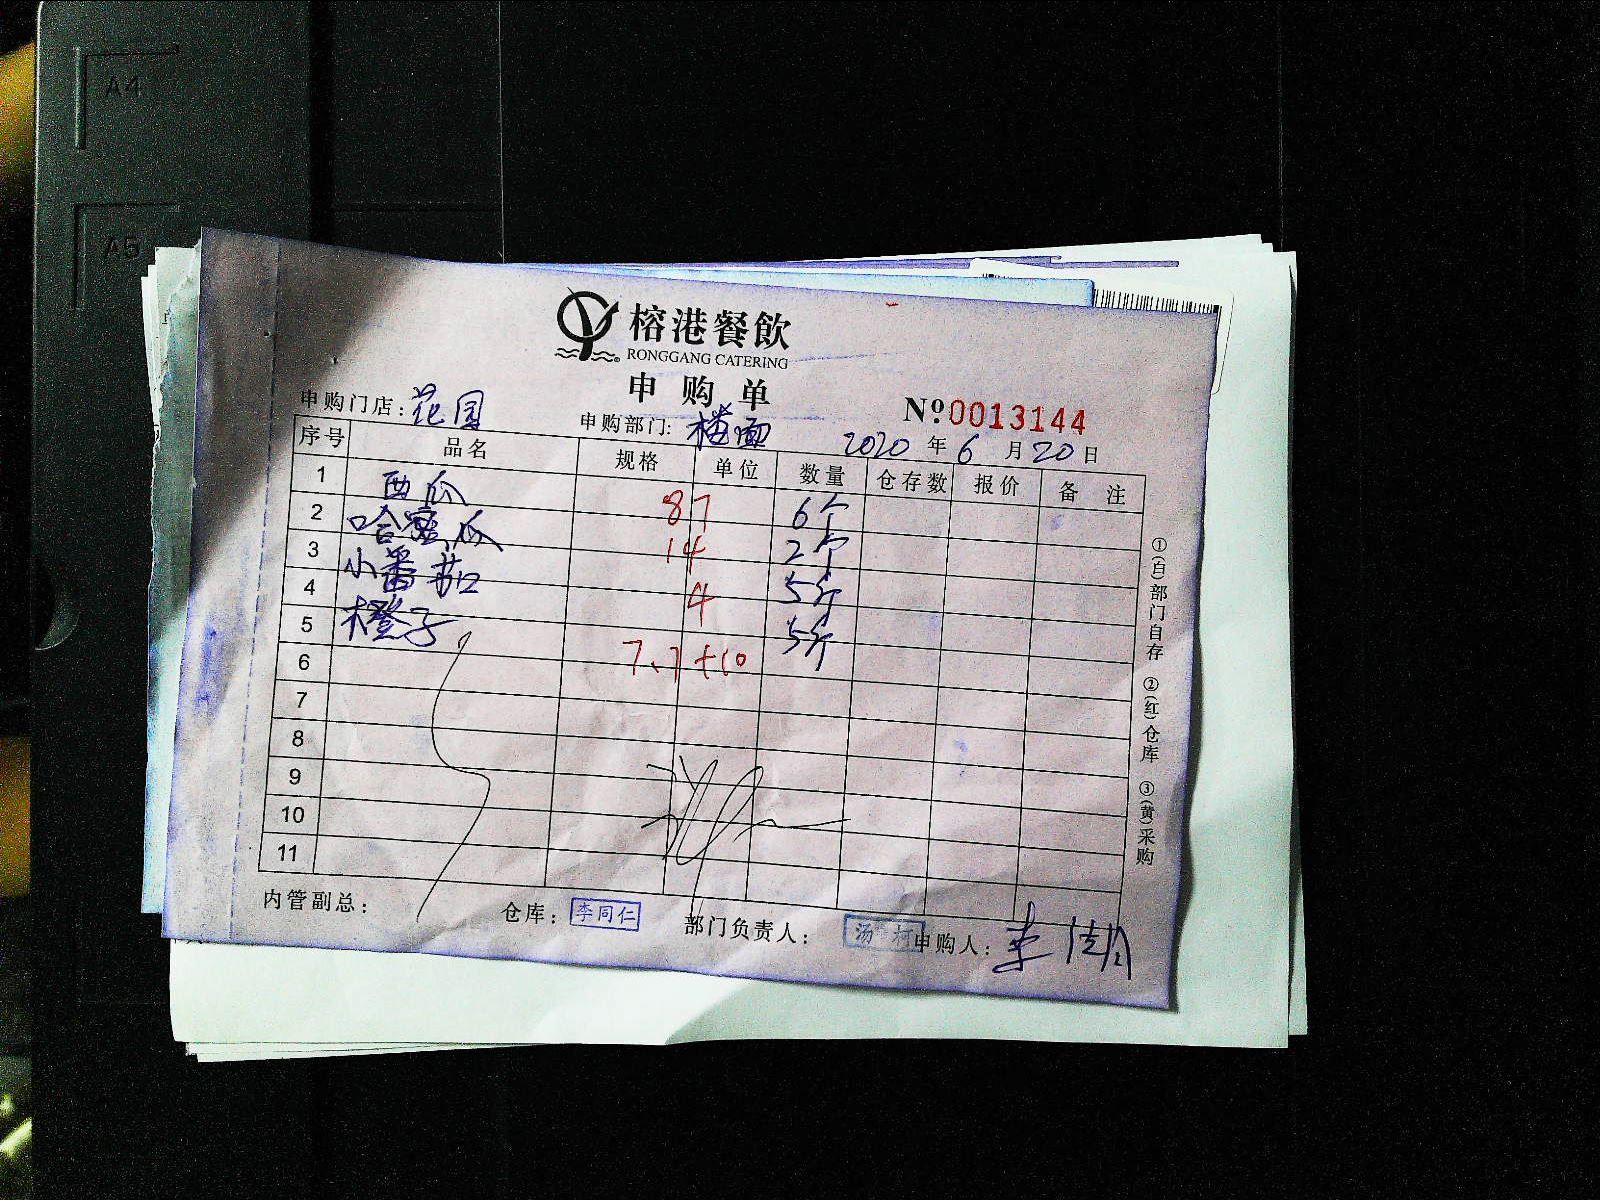 A4
A5
榕港餐飲
RONGGANG CATERING
申购单
№0013144
申购门店:花园
申购部门:楼面
2020年6月20日
序号 品名 规格 单位 数量 仓存数 报价 备注
1 西瓜 87 6个
2 哈密瓜 14 2个
3 小番茄 4 5斤
4 橙子 7.7+10 5斤
5
6
7
8
9
10
11
①(白)部门自存 ②(红)仓库 ③(黄)采购
内管副总: 仓库:李同仁 部门负责人:汤柯 申购人:李